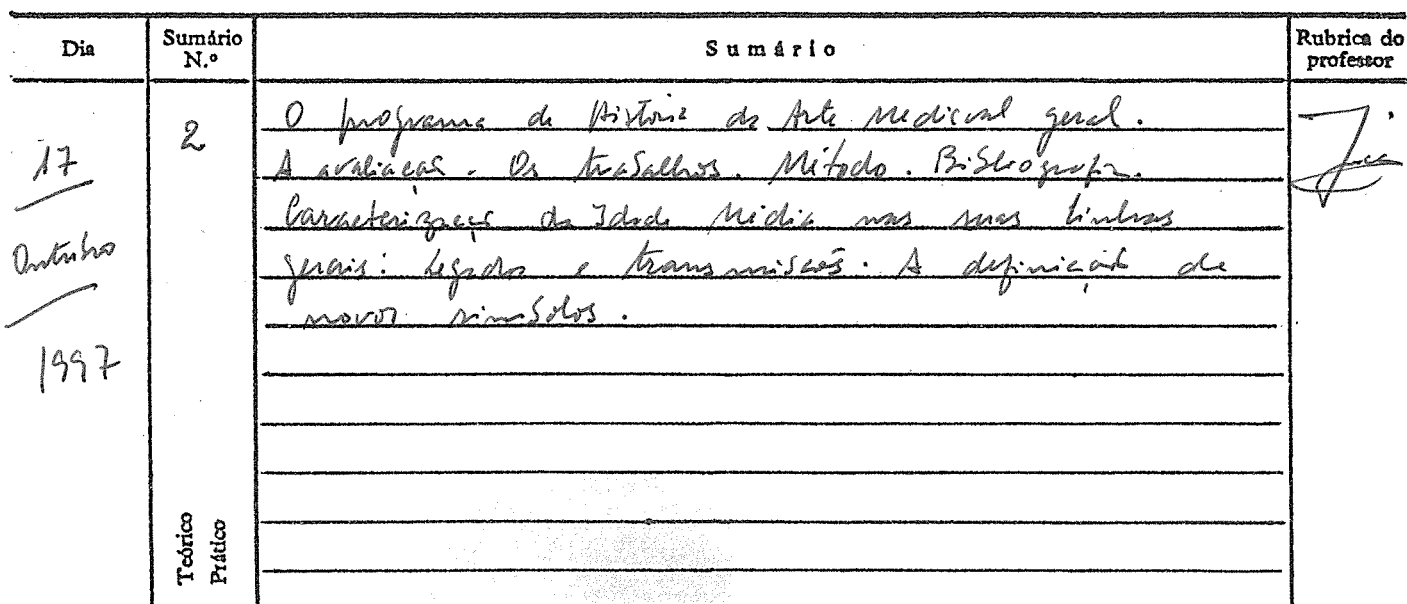 Dia
Sumário N.º
Sumário
Rubrica do professor
17
Outubro
1997
2
O programa de História da Arte Medieval geral.
A avaliação. Os trabalhos. Método. Bibliografia.
Caracterização da Idade Média nas suas linhas
gerais: Legados e transmissões. A definição de
novos símbolos.
Teórico
Prático